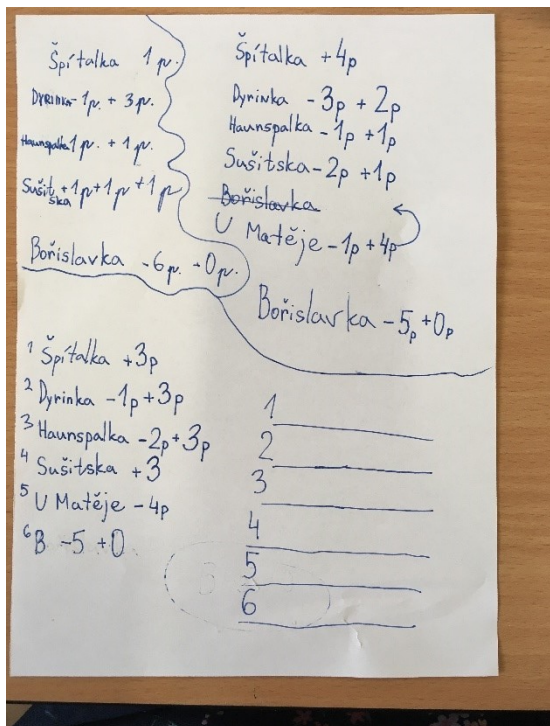 Špítalka 1 p.
Dyrinka -1p. + 3p.
Haunspalka -1p. + 1p.
Sušitska +1p +1p +1p
Bořislavka -6p. +0p.
Špítalka +4p
Dyrinka -3p + 2p
Haunspalka -1p +1p
Sušitska -2p +1p
Bořislavka
U Matěje -1p +4p
Bořislavka -5p +0p
1 Špítalka +3p
2 Dyrinka -1p +3p
3 Haunspalka -2p +3p
4 Sušitska +3
5 U Matěje -4p
6 B -5 +0
1
2
3
4
5
6